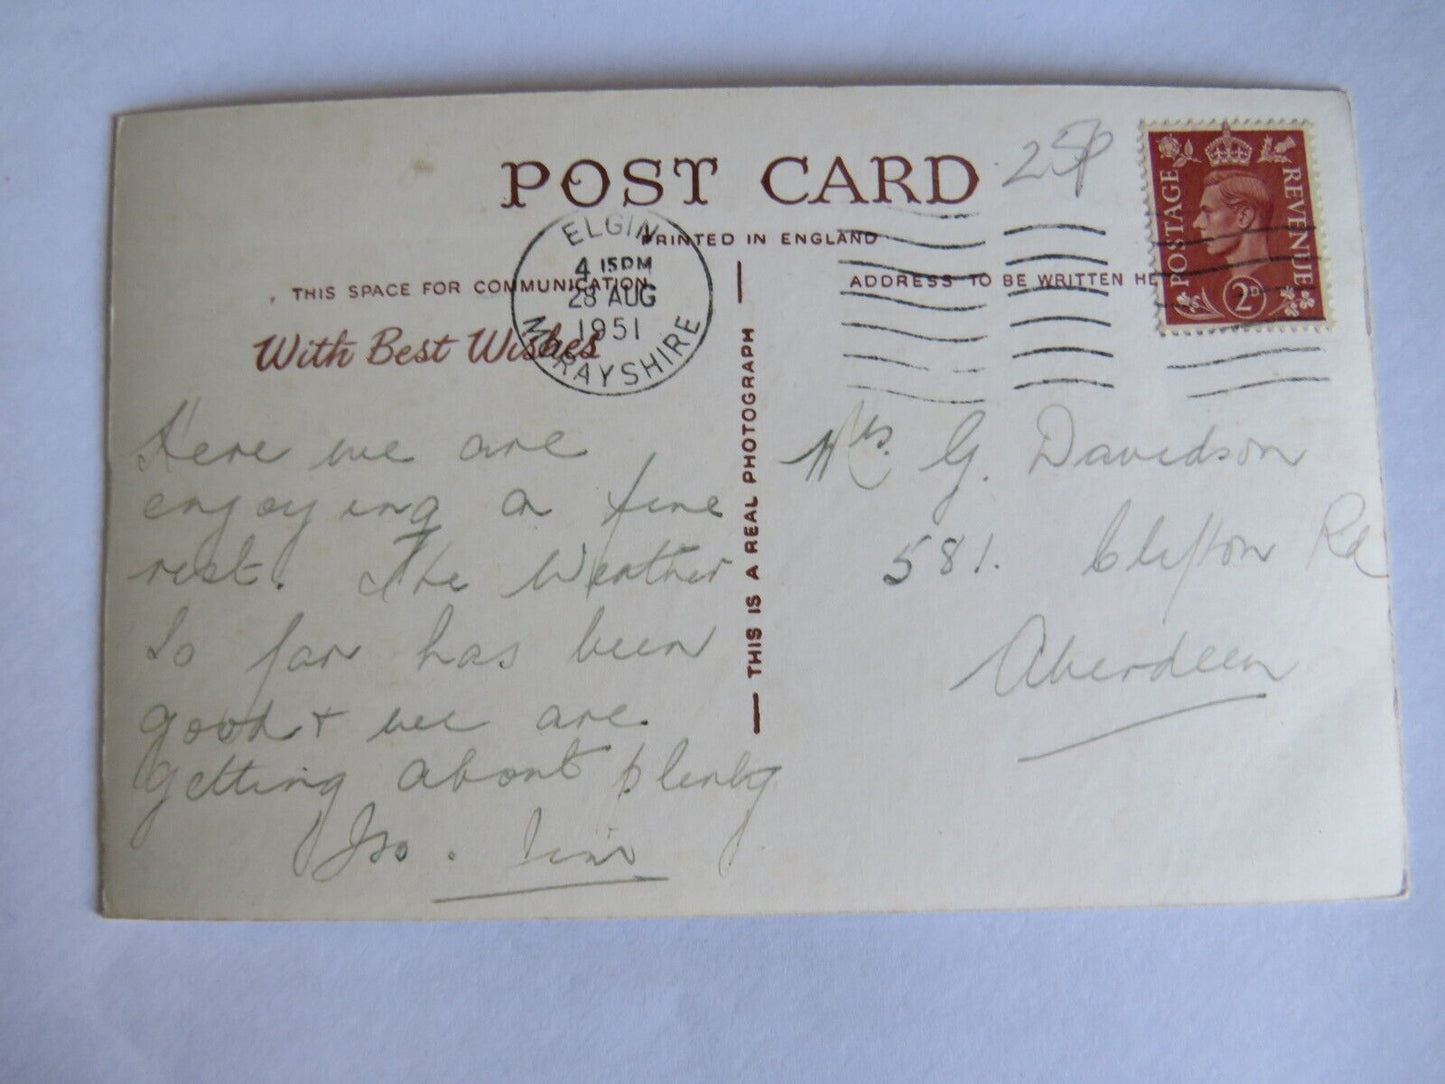 POST CARD
25p
POSTAGE
REVENUE
2D
PRINTED IN ENGLAND
THIS SPACE FOR COMMUNICATION
ADDRESS TO BE WRITTEN HE
ELGIN
4 15PM
28 AUG
1951
MORAYSHIRE
With Best Wishes
THIS IS A REAL PHOTOGRAPH
Here we are
enjoying a fine
rest. The Weather
So far has been
good + we are
getting about plenty
Mrs. G. Davidson
581. Clifton Rd
Aberdeen